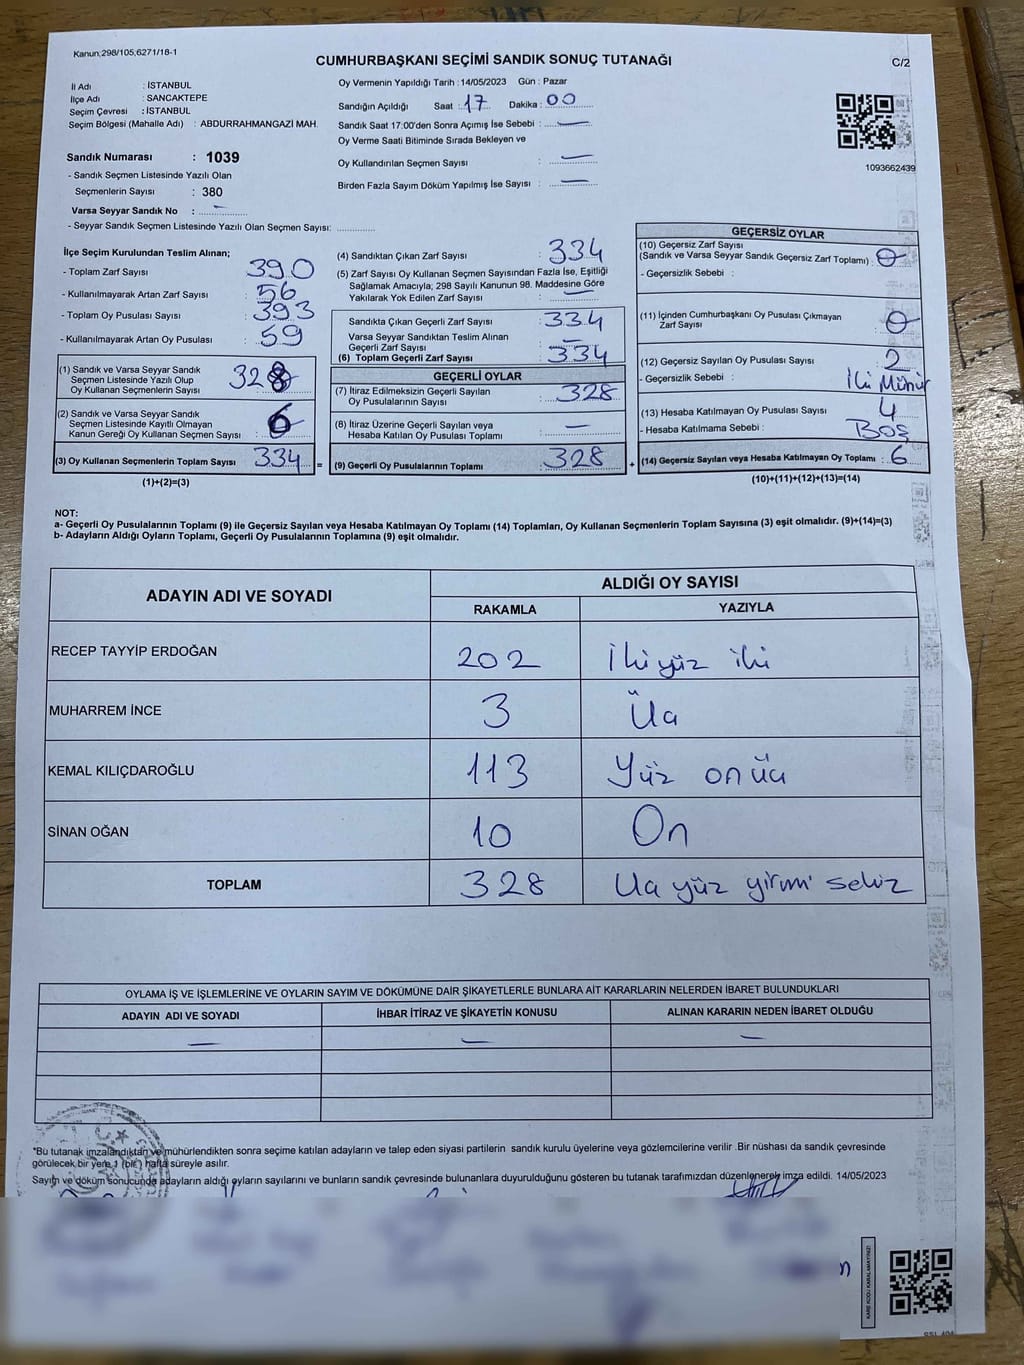 Kanun;298/105,6271/18-1
CUMHURBAŞKANI SEÇİMİ SANDIK SONUÇ TUTANAĞI
C/2
İl Adı : İSTANBUL
İlçe Adı : SANCAKTEPE
Seçim Çevresi : İSTANBUL
Seçim Bölgesi (Mahalle Adı) : ABDURRAHMANGAZİ MAH.
Oy Vermenin Yapıldığı Tarih : 14/05/2023 Gün : Pazar
Sandığın Açıldığı Saat : 17 Dakika : 00
Sandık Saat 17:00'den Sonra Açımış İse Sebebi : —
Oy Verme Saati Bitiminde Sırada Bekleyen ve
Oy Kullandırılan Seçmen Sayısı : —
Birden Fazla Sayım Döküm Yapılmış İse Sayısı : —
1093662439
Sandık Numarası : 1039
- Sandık Seçmen Listesinde Yazılı Olan
Seçmenlerin Sayısı : 380
Varsa Seyyar Sandık No : —
- Seyyar Sandık Seçmen Listesinde Yazılı Olan Seçmen Sayısı:
İlçe Seçim Kurulundan Teslim Alınan;
- Toplam Zarf Sayısı 390
- Kullanılmayarak Artan Zarf Sayısı : 56
- Toplam Oy Pusulası Sayısı : 393
- Kullanılmayarak Artan Oy Pusulası : 59
(1) Sandık ve Varsa Seyyar Sandık
Seçmen Listesinde Yazılı Olup
Oy Kullanan Seçmenlerin Sayısı 328
(2) Sandık ve Varsa Seyyar Sandık
Seçmen Listesinde Kayıtlı Olmayan
Kanun Gereği Oy Kullanan Seçmen Sayısı : 6
(3) Oy Kullanan Seçmenlerin Toplam Sayısı : 334 =
(1)+(2)=(3)
(4) Sandıktan Çıkan Zarf Sayısı : 334
(5) Zarf Sayısı Oy Kullanan Seçmen Sayısından Fazla İse, Eşitliği
Sağlamak Amacıyla; 298 Sayılı Kanunun 98. Maddesine Göre
Yakılarak Yok Edilen Zarf Sayısı : —
Sandıkta Çıkan Geçerli Zarf Sayısı : 334
Varsa Seyyar Sandıktan Teslim Alınan
Geçerli Zarf Sayısı : —
(6) Toplam Geçerli Zarf Sayısı : 334
GEÇERLİ OYLAR
(7) İtiraz Edilmeksizin Geçerli Sayılan
Oy Pusulalarının Sayısı : 328
(8) İtiraz Üzerine Geçerli Sayılan veya
Hesaba Katılan Oy Pusulası Toplamı : —
(9) Geçerli Oy Pusulalarının Toplamı : 328 +
GEÇERSİZ OYLAR
(10) Geçersiz Zarf Sayısı
(Sandık ve Varsa Seyyar Sandık Geçersiz Zarf Toplamı) : 0
- Geçersizlik Sebebi :
(11) İçinden Cumhurbaşkanı Oy Pusulası Çıkmayan
Zarf Sayısı : 0
(12) Geçersiz Sayılan Oy Pusulası Sayısı : 2
- Geçersizlik Sebebi : İki Mühür
(13) Hesaba Katılmayan Oy Pusulası Sayısı : 4
- Hesaba Katılmama Sebebi : Boş
(14) Geçersiz Sayılan veya Hesaba Katılmayan Oy Toplamı : 6
(10)+(11)+(12)+(13)=(14)
NOT:
a- Geçerli Oy Pusulalarının Toplamı (9) ile Geçersiz Sayılan veya Hesaba Katılmayan Oy Toplamı (14) Toplamları, Oy Kullanan Seçmenlerin Toplam Sayısına (3) eşit olmalıdır. (9)+(14)=(3)
b- Adayların Aldığı Oyların Toplamı, Geçerli Oy Pusulalarının Toplamına (9) eşit olmalıdır.
ADAYIN ADI VE SOYADI
ALDIĞI OY SAYISI
RAKAMLA YAZIYLA
RECEP TAYYİP ERDOĞAN 202 İki yüz iki
MUHARREM İNCE 3 Üç
KEMAL KILIÇDAROĞLU 113 Yüz onüç
SİNAN OĞAN 10 On
TOPLAM 328 Üç yüz yirmi sekiz
OYLAMA İŞ VE İŞLEMLERİNE VE OYLARIN SAYIM VE DÖKÜMÜNE DAİR ŞİKAYETLERLE BUNLARA AİT KARARLARIN NELERDEN İBARET BULUNDUKLARI
ADAYIN ADI VE SOYADI İHBAR İTİRAZ VE ŞİKAYETİN KONUSU ALINAN KARARIN NEDEN İBARET OLDUĞU
— — —
*Bu tutanak imzalandıktan ve mühürlendikten sonra seçime katılan adayların ve talep eden siyasi partilerin sandık kurulu üyelerine veya gözlemcilerine verilir .Bir nüshası da sandık çevresinde
görülecek bir yere 1 (bir ) hafta süreyle asılır.
Sayım ve döküm sonucunda adayların aldığı oyların sayılarını ve bunların sandık çevresinde bulunanlara duyurulduğunu gösteren bu tutanak tarafımızdan düzenlenerek imza edildi. 14/05/2023
KARE KODU KARALAMAYINIZ!